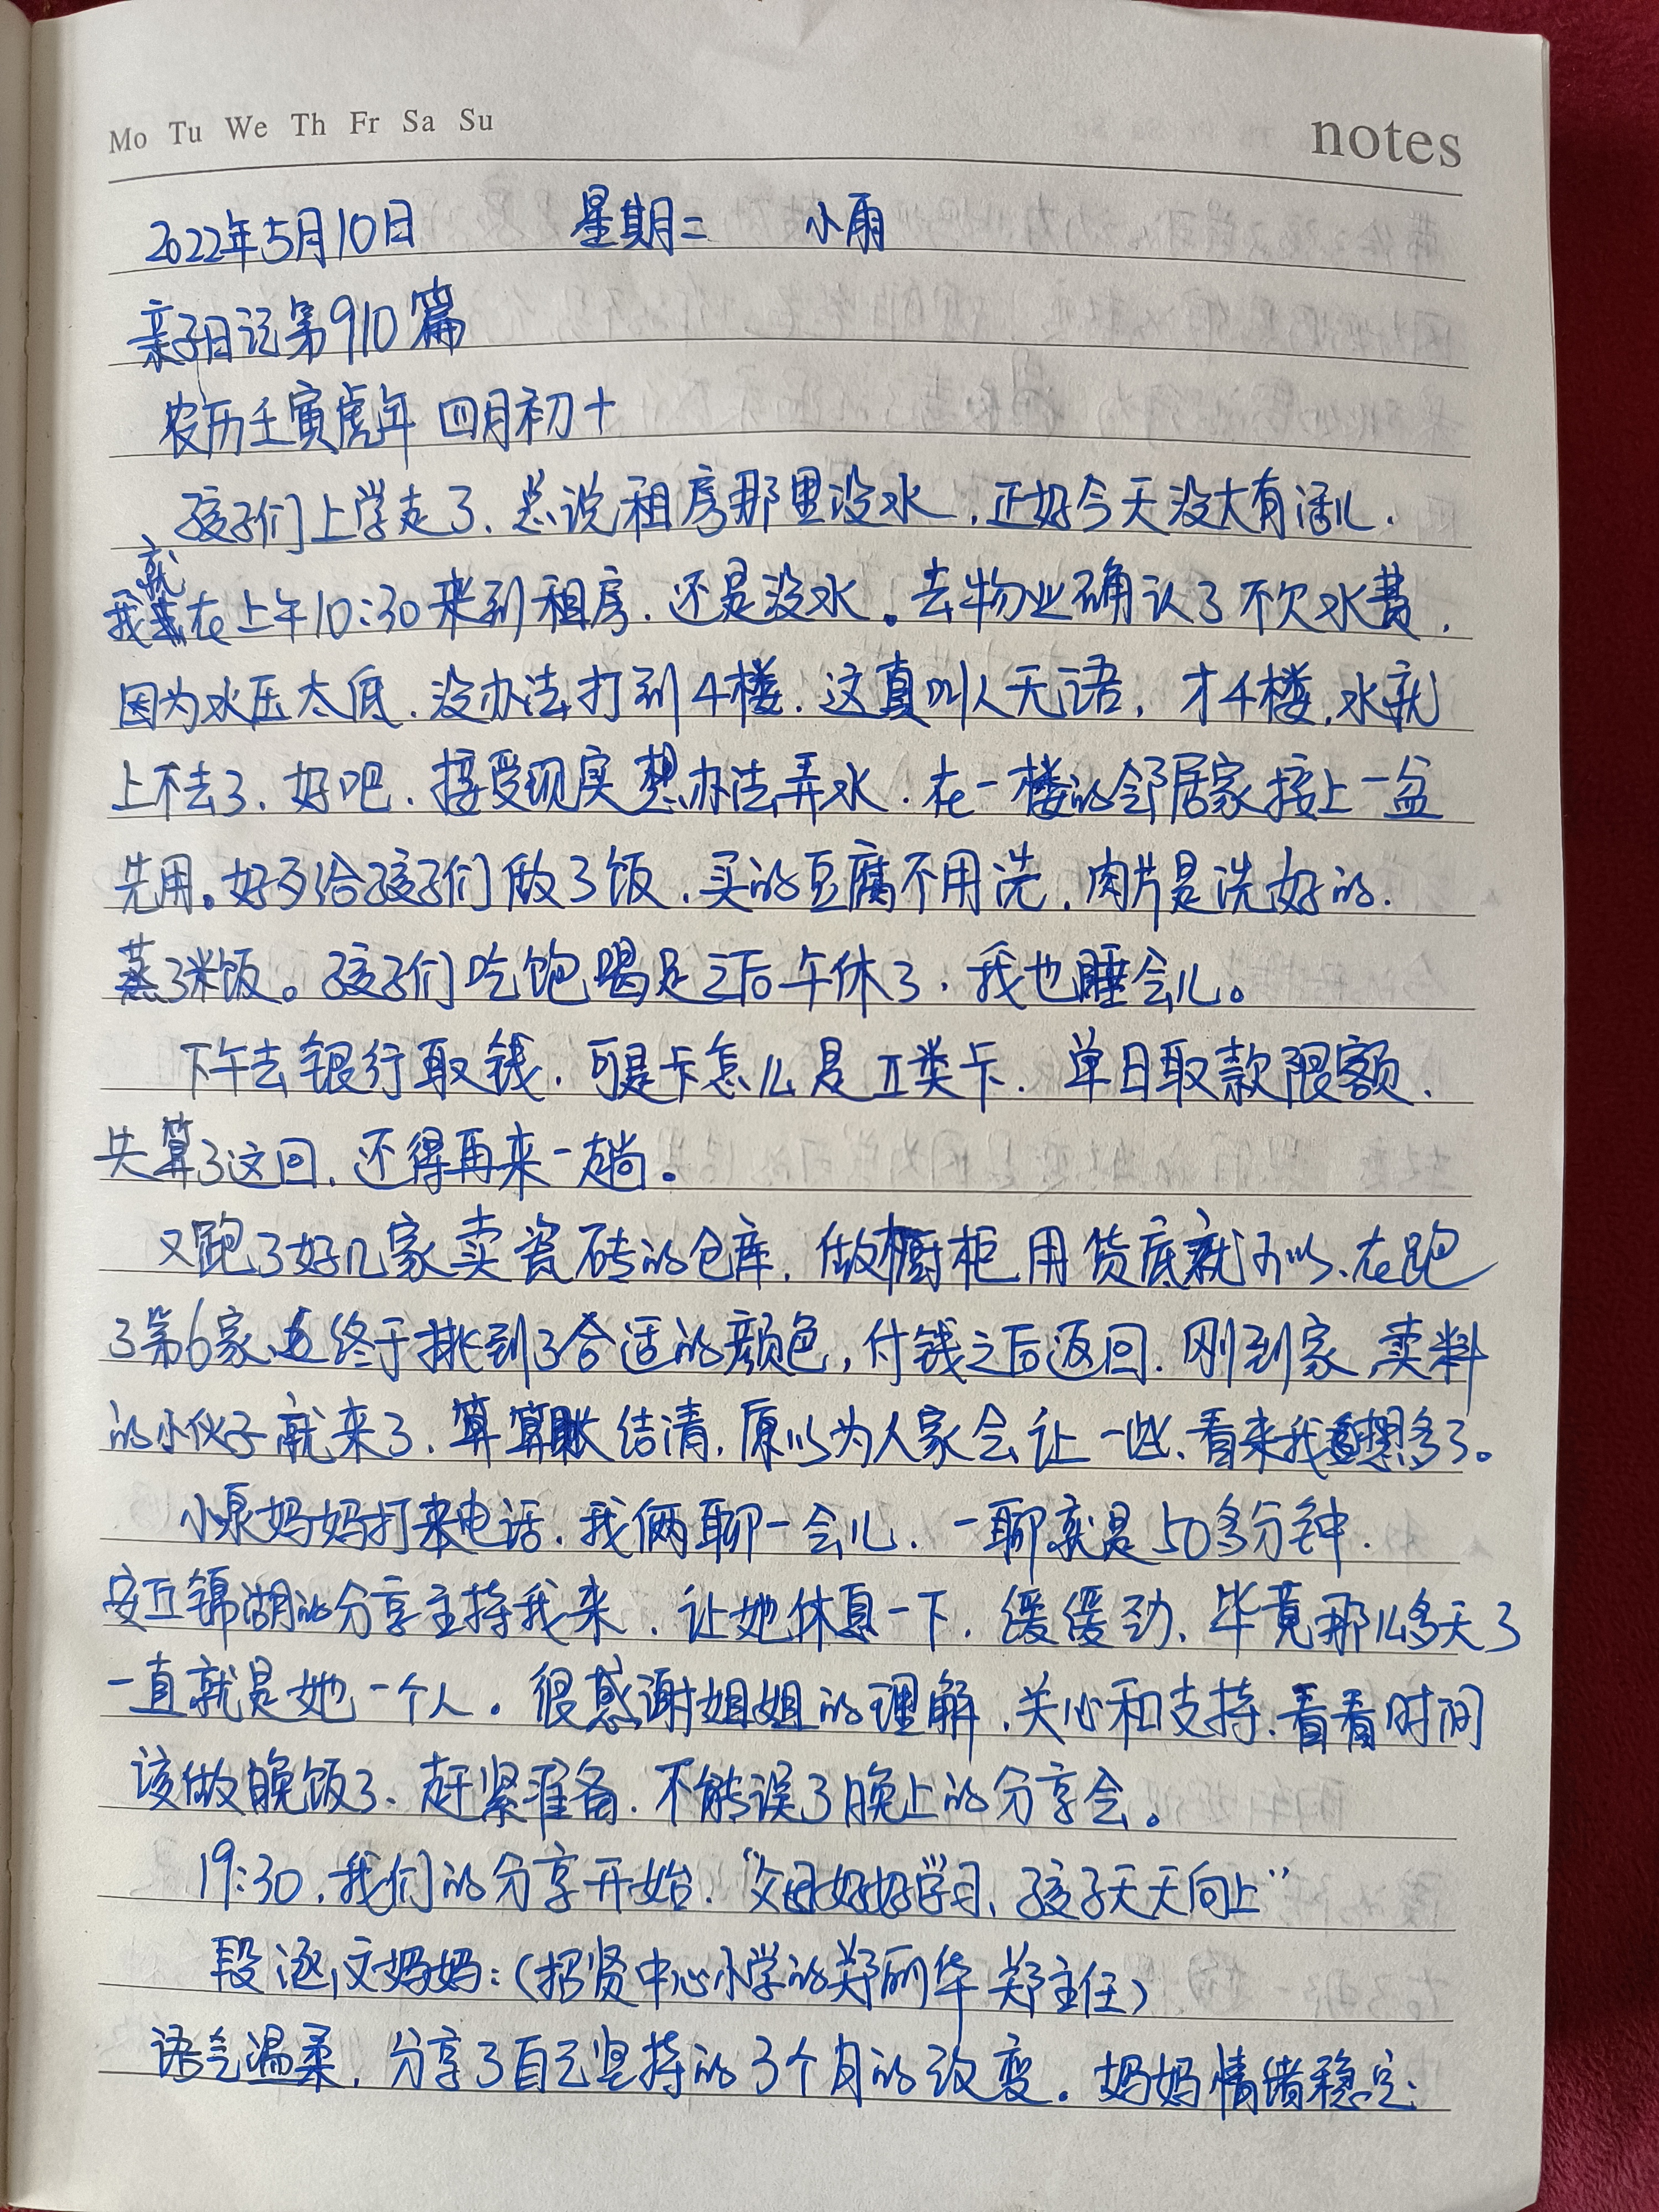 Mo Tu We Th Fr Sa Su
notes
2022年5月10日 星期二 小雨
亲子日记第910篇
农历壬寅虎年 四月初十
孩子们上学走了、总说租房那里没水，正好今天没大有活儿．
我就在上午10:30来到租房．还是没水。去物业确认了不欠水费，
因为水压太低．没办法打到4楼．这真叫人无语，才4楼，水就
上不去了、好吧．接受现实想办法弄水．在一楼的邻居家接上一盆
先用。好歹给孩子们做了饭．买的豆腐不用洗．肉片是洗好的．
蒸了米饭。孩子们吃饱喝足之后午休了．我也睡会儿。
下午去银行取钱．可是卡怎么是Ⅱ类卡．单日取款限额．
失算了这回．还得再来一趟。
又跑了好几家卖瓷砖的仓库．做橱柜用货底就可以、在跑
了第6家终于挑到了合适的颜色，付钱之后返回．刚到家，卖料
的小伙子就来了．算算账结清，原以为人家会让一些、看来我想多了。
小泉妈妈打来电话．我俩聊一会儿．一聊就是50多分钟．
安丘锦湖的分享主持我来．让她休息一下．缓缓劲、毕竟那么多天了
一直就是她一个人。很感谢姐姐的理解、关心和支持．看看时间
该做晚饭了、赶紧准备．不能误了晚上的分享会。
19:30，我们的分享开始．“父母好好学习、孩子天天向上”
段逐文妈妈：（招贤中心小学的郑丽华 郑主任）
语气温柔，分享了自己坚持的3个月的改变。妈妈情绪稳定：